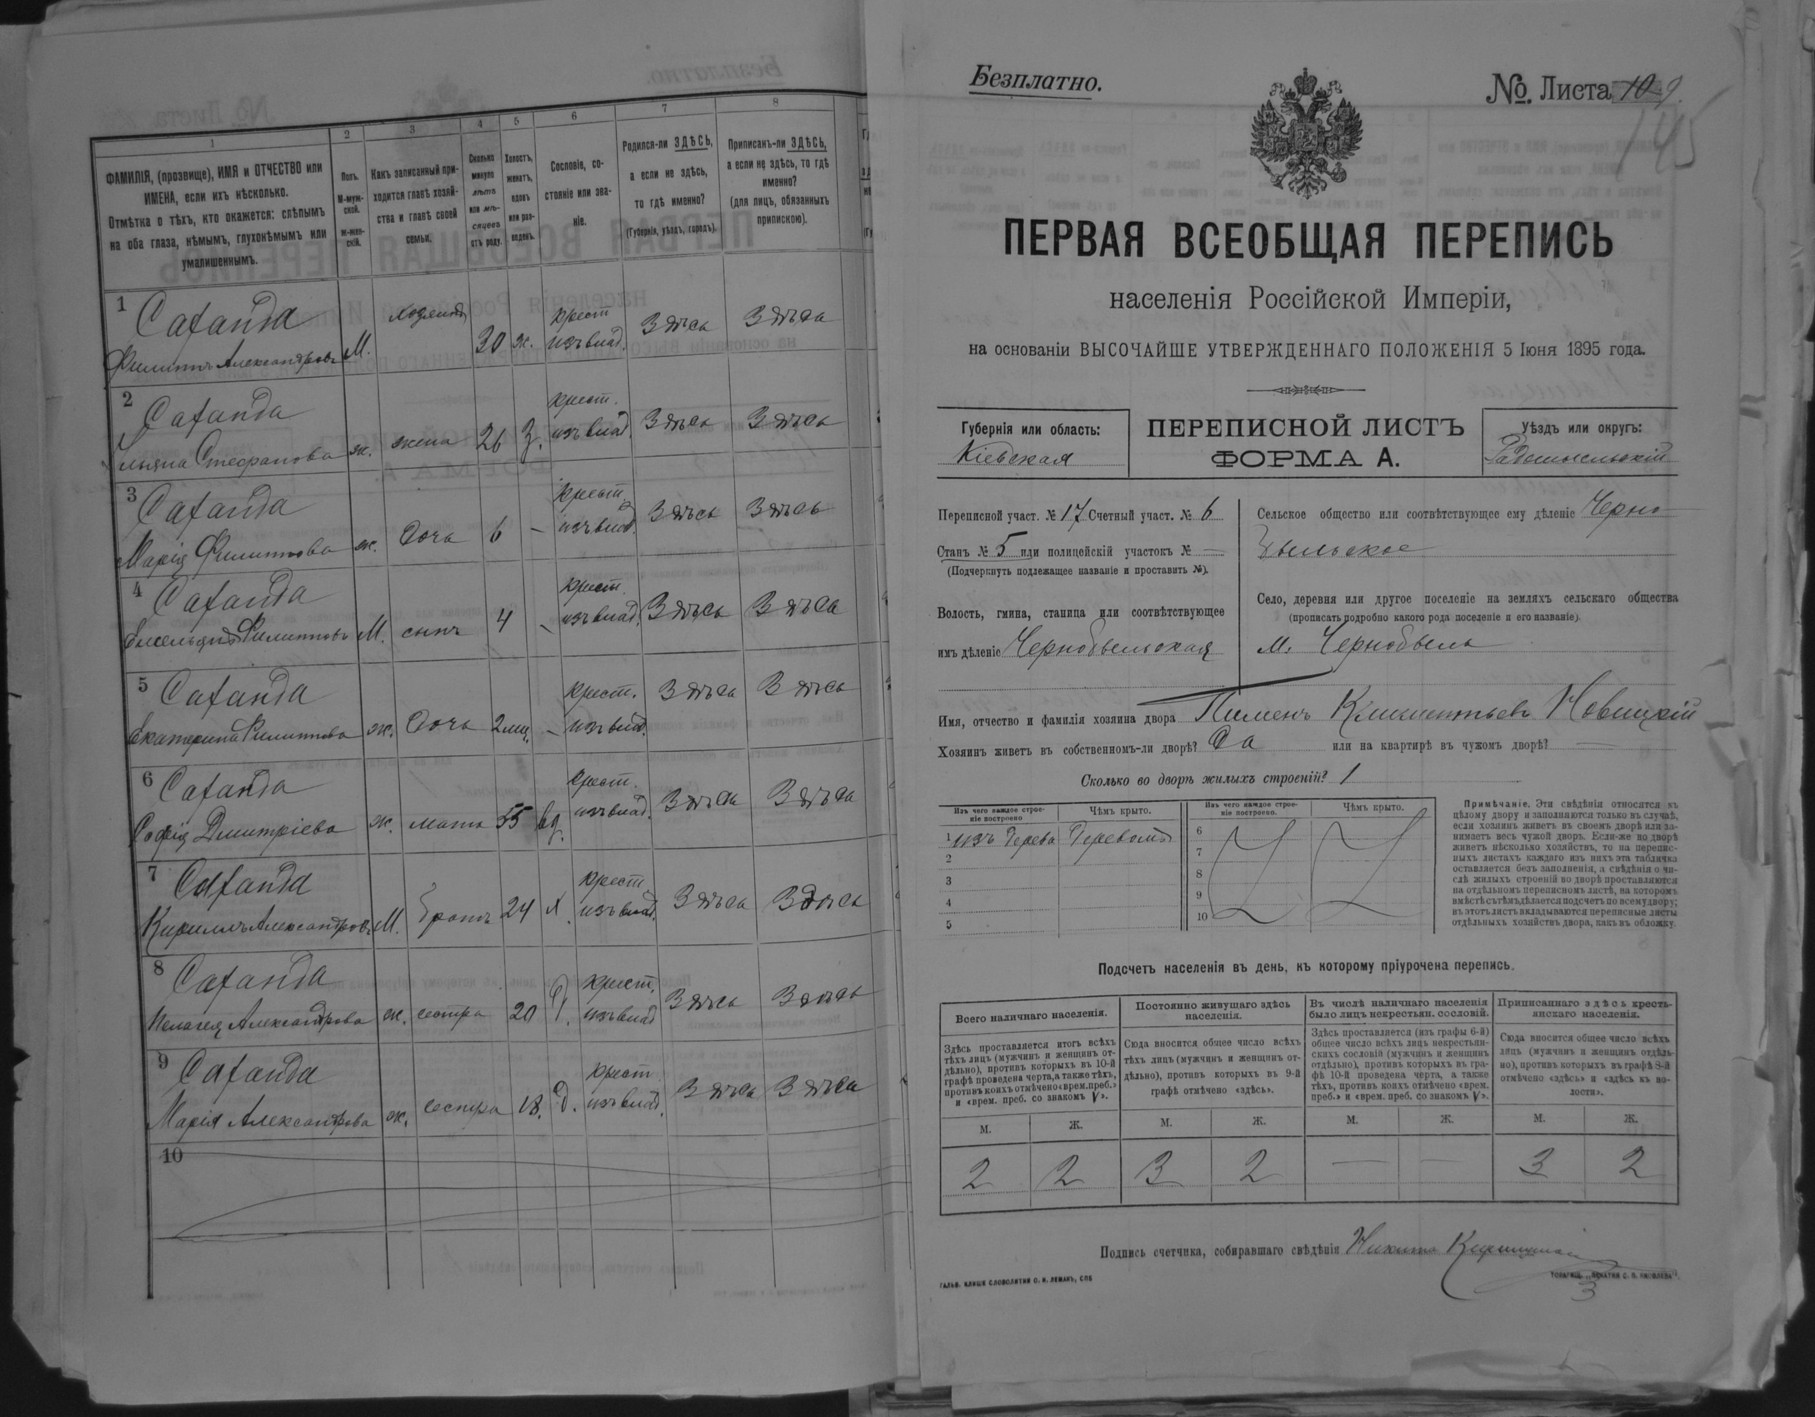 1
2
3
4
5
6
7
8
ФАМИЛІЯ, (прозвище), ИМЯ и ОТЧЕСТВО или
ИМЕНА, если ихъ нѣсколько.
Отмѣтка о тѣхъ, кто окажется: слѣпымъ
на оба глаза, нѣмымъ, глухонѣмымъ или
умалишеннымъ.
Полъ.
М-муж-
ской.
ж-жен-
скій.
Какъ записанный при-
ходится главѣ хозяй-
ства и главѣ своей
семьи.
Сколько
минуло
лѣтъ
или мѣ-
сяцевъ
отъ роду.
Холостъ,
женатъ,
вдовъ
или раз-
веденъ.
Сословіе, со-
стояніе или зва-
ніе.
Родился-ли ЗДѢСЬ,
а если не здѣсь,
то гдѣ именно?
(Губернія, уѣздъ, городъ).
Приписанъ-ли ЗДѢСЬ,
а если не здѣсь, то гдѣ
именно?
(для лицъ, обязанныхъ
припискою).
1 Саганда
Филиппъ Александровъ М. хозяинъ 30 ж. крест. изъ влад. Здѣсь Здѣсь
2 Саганда
Ульяна Стефанова ж. жена 26 З. крест. изъ влад. Здѣсь Здѣсь
3 Саганда
Марія Филиппова ж. дочь 6 – крест. изъ влад. Здѣсь Здѣсь
4 Саганда
Филипповъ М. сынъ 4 – крест. изъ влад. Здѣсь Здѣсь
5 Саганда
Екатерина Филиппова ж. дочь 2 мц. – крест. изъ влад. Здѣсь Здѣсь
6 Саганда
Софія Дмитріева ж. мать 55 вд. крест. изъ влад. Здѣсь Здѣсь
7 Саганда
Кириллъ Александровъ М. братъ 24 х. крест. изъ влад. Здѣсь Здѣсь
8 Саганда
Пелагея Александрова ж. сестра 20 д. крест. изъ влад. Здѣсь Здѣсь
9 Саганда
Марія Александрова ж. сестра 18. д. крест. изъ влад. Здѣсь Здѣсь
10
Безплатно.
№ Листа 10 9.
145
ПЕРВАЯ ВСЕОБЩАЯ ПЕРЕПИСЬ
населенія Россійской Имперіи,
на основаніи ВЫСОЧАЙШЕ УТВЕРЖДЕННАГО ПОЛОЖЕНІЯ 5 Іюня 1895 года.
Губернія или область:
Кіевская
ПЕРЕПИСНОЙ ЛИСТЪ
ФОРМА А.
Уѣздъ или округъ:
Радомысльскій
Переписной участ. № 17 Счетный участ. № 6
Станъ № 5 или полицейскій участокъ № —
(Подчеркнуть подлежащее названіе и проставить №).
Волость, гмина, станица или соотвѣтствующее
имъ дѣленіе Чернобыльская
Сельское общество или соотвѣтствующее ему дѣленіе Черно
быльское
Село, деревня или другое поселеніе на земляхъ сельскаго общества
(прописать подробно какого рода поселеніе и его названіе).
м. Чернобыль
Имя, отчество и фамилія хозяина двора Пименъ Климентьевъ Новицкій
Хозяинъ живетъ въ собственномъ-ли дворѣ? Да или на квартирѣ въ чужомъ дворѣ? —
Сколько во дворѣ жилыхъ строеній? 1
Изъ чего каждое строе-
ніе построено
Чѣмъ крыто.
Изъ чего каждое строе-
ніе построено.
Чѣмъ крыто.
1 изъ дерева Деревомъ
2
3
4
5
6
7
8
9
10
Примѣчаніе. Эти свѣдѣнія относятся къ
цѣлому двору и заполняются только въ случаѣ,
если хозяинъ живетъ въ своемъ дворѣ или за-
нимаетъ весь чужой дворъ. Если-же во дворѣ
живетъ нѣсколько хозяйствъ, то на перепис-
ныхъ листахъ каждаго изъ нихъ эта табличка
оставляется безъ заполненія, а свѣдѣнія о чи-
слѣ жилыхъ строеній во дворѣ проставляются
на отдѣльномъ переписномъ листѣ, на которомъ
вмѣстѣ съ тѣмъ дѣлается подсчетъ по всему двору;
въ этотъ листъ вкладываются переписные листы
отдѣльныхъ хозяйствъ двора, какъ въ обложку.
Подсчетъ населенія въ день, къ которому пріурочена перепись.
Всего наличнаго населенія.
Постоянно живущаго здѣсь
населенія.
Въ числѣ наличнаго населенія
было лицъ некрестьян. сословій.
Приписаннаго здѣсь кресть-
янскаго населенія.
Здѣсь проставляется итогъ всѣхъ
тѣхъ лицъ (мужчинъ и женщинъ от-
дѣльно), противъ которыхъ въ 10-й
графѣ проведена черта, а также тѣхъ,
противъ коихъ отмѣчено «врем. преб.»
и «врем. преб. со знакомъ V».
Сюда вносится общее число всѣхъ
тѣхъ лицъ (мужчинъ и женщинъ от-
дѣльно), противъ которыхъ въ 9-й
графѣ отмѣчено «здѣсь».
Здѣсь проставляется (изъ графы 6-й)
общее число всѣхъ лицъ некрестьян-
скихъ сословій (мужчинъ и женщинъ
отдѣльно), противъ которыхъ въ гра-
фѣ 10-й проведена черта, а также
тѣхъ, противъ коихъ отмѣчено «врем.
преб.» и «врем. преб. со знакомъ V».
Сюда вносится общее число всѣхъ
лицъ (мужчинъ и женщинъ отдѣль-
но), противъ которыхъ въ графѣ 8-й
отмѣчено «здѣсь» и «здѣсь къ во-
лости».
М. Ж. М. Ж. М. Ж. М. Ж.
2 2 3 2 — — 3 2
Подпись счетчика, собиравшаго свѣдѣнія Никита
ГАЛЬВ. КЛИШЕ СЛОВОЛИТНИ О. И. ЛЕМАНЪ, СПБ
ТОВАРИЩ. „ПЕЧАТНЯ С. П. ЯКОВЛЕВА“.
3